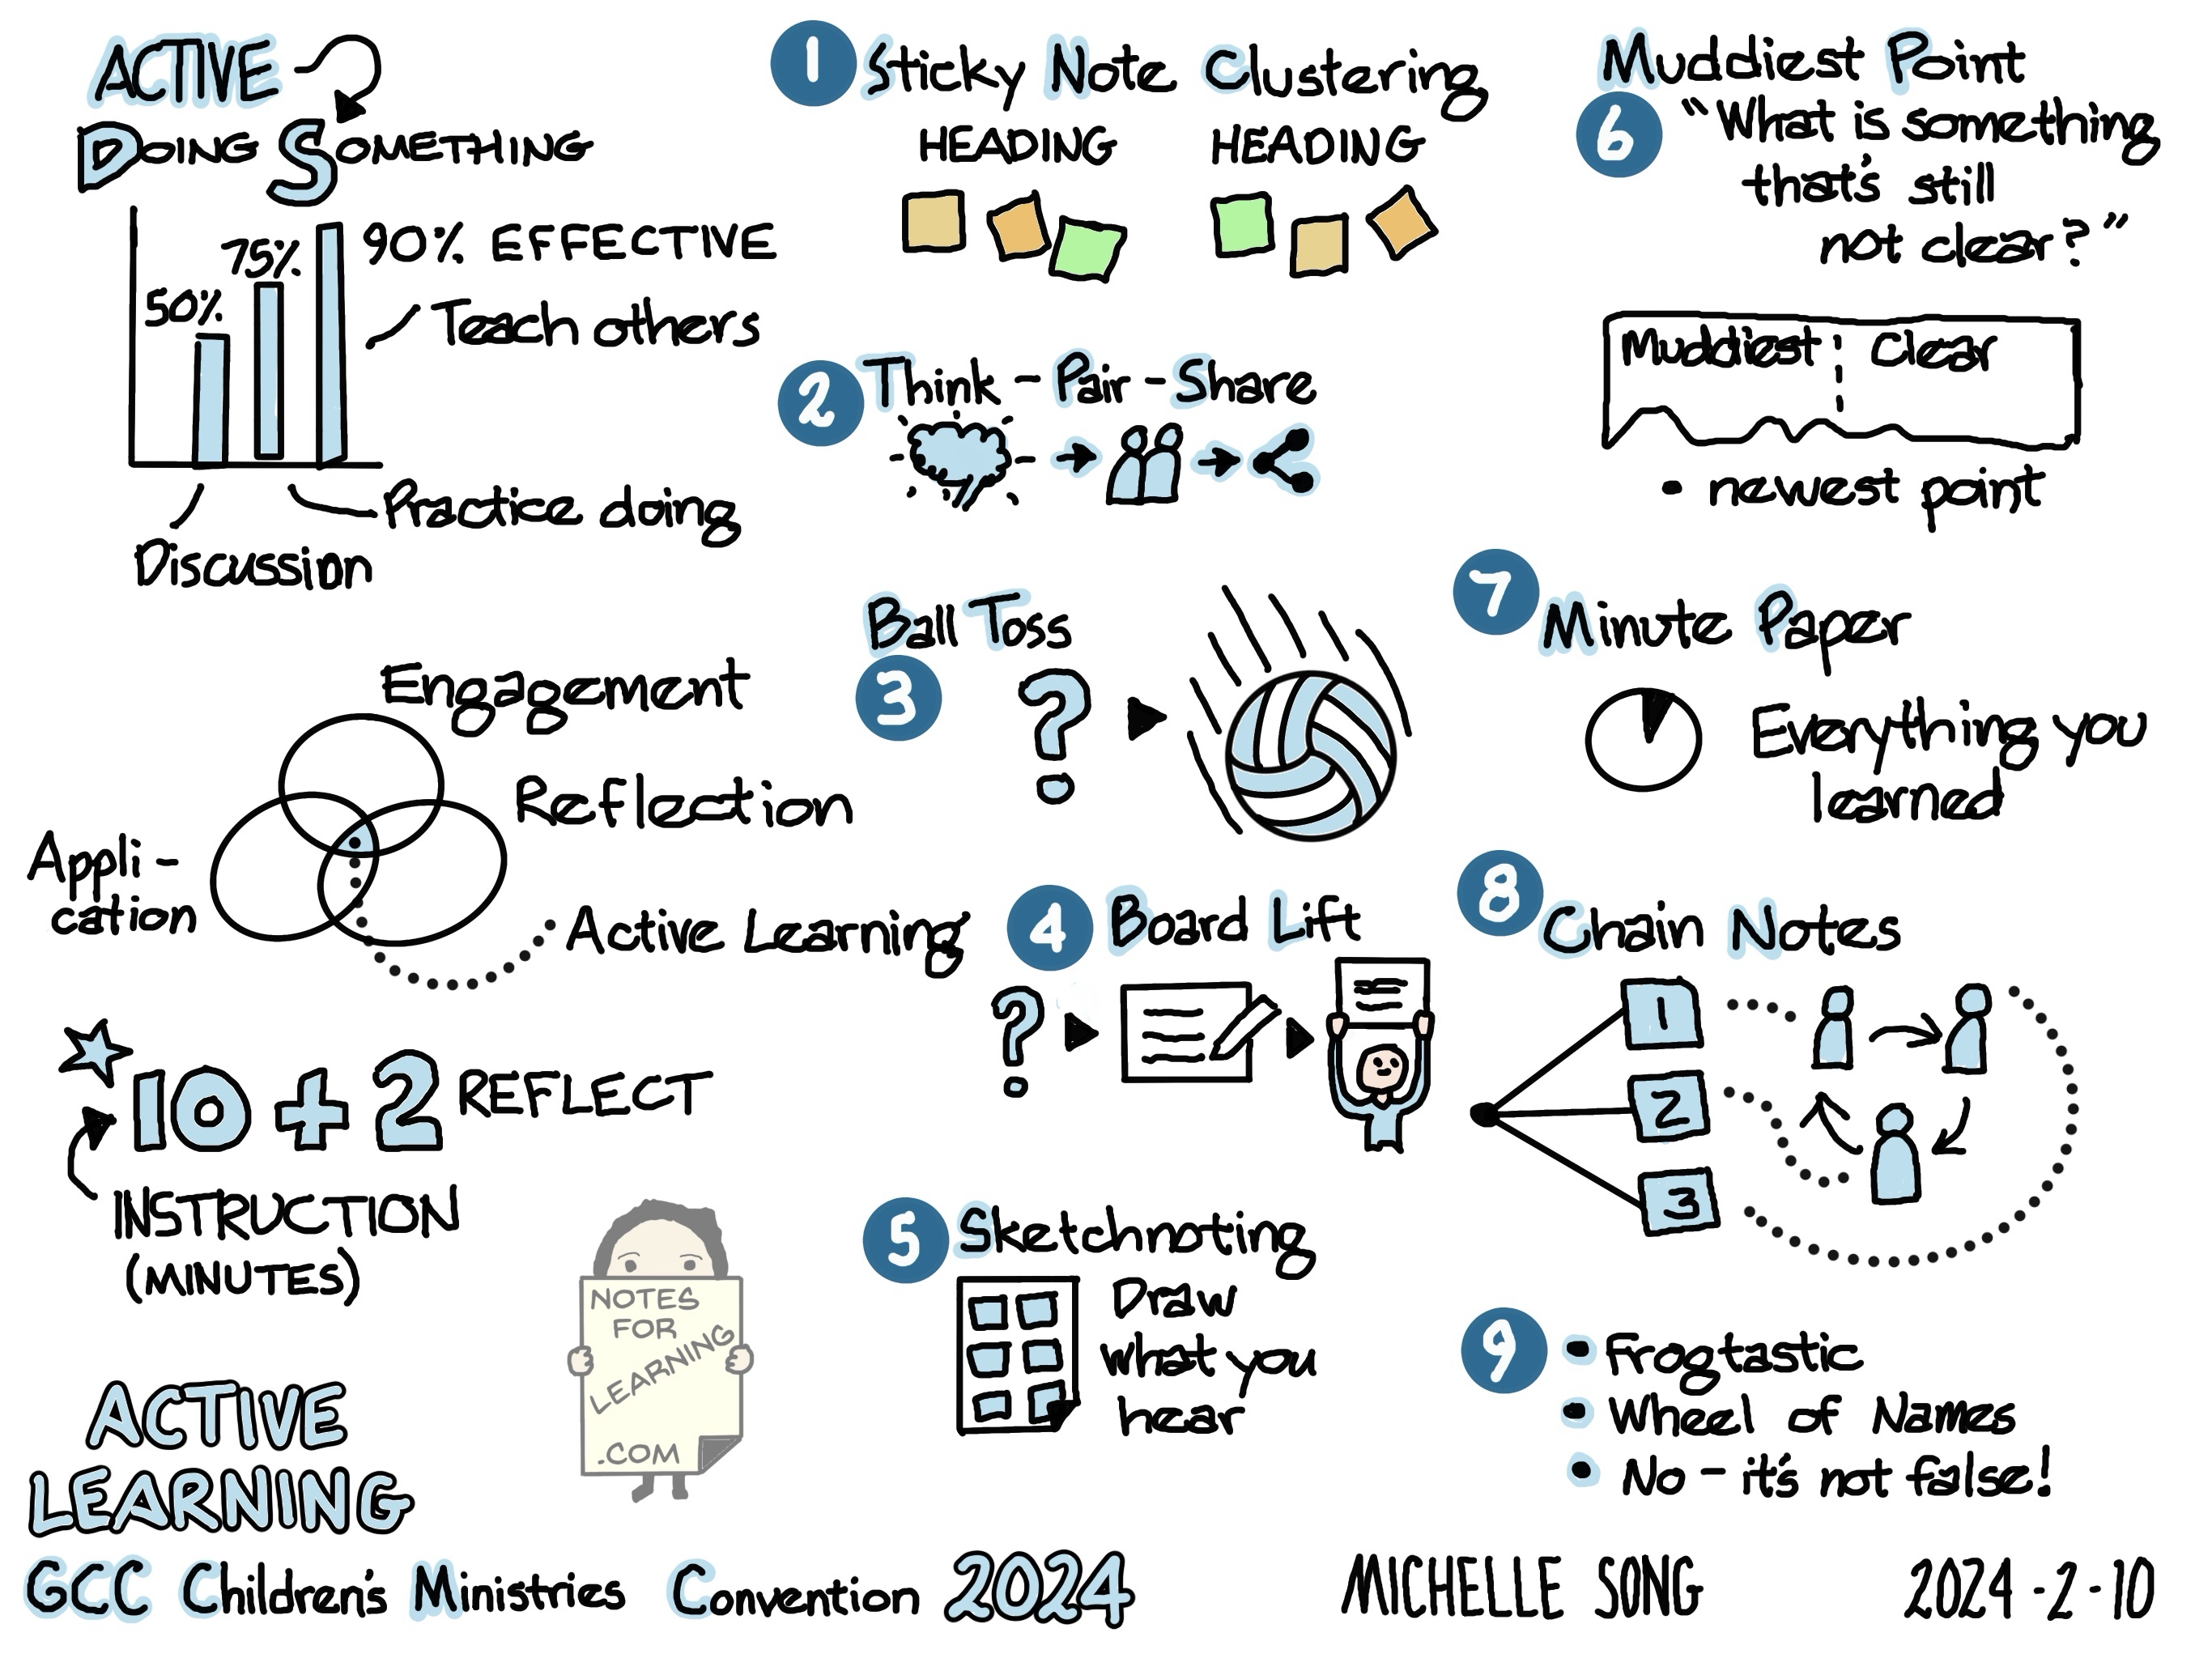 ACTIVE
DOING SOMETHING
50%
75%
90% EFFECTIVE
Teach others
Practice doing
Discussion
Engagement
Reflection
Appli-
cation
Active Learning
10 + 2 REFLECT
INSTRUCTION
(MINUTES)
NOTES
FOR
LEARNING
.COM
ACTIVE
LEARNING
GCC Children's Ministries Convention 2024
1 Sticky Note Clustering
HEADING HEADING
2 Think - Pair - Share
Ball Toss
3
?
4 Board Lift
?
5 Sketchnoting
Draw
what you
hear
Muddiest Point
6 "What is something
that's still
not clear?"
Muddiest Clear
• newest point
7 Minute Paper
Everything you
learned
8 Chain Notes
1
2
3
9 • Frogtastic
• Wheel of Names
• No - it's not false!
MICHELLE SONG
2024-2-10